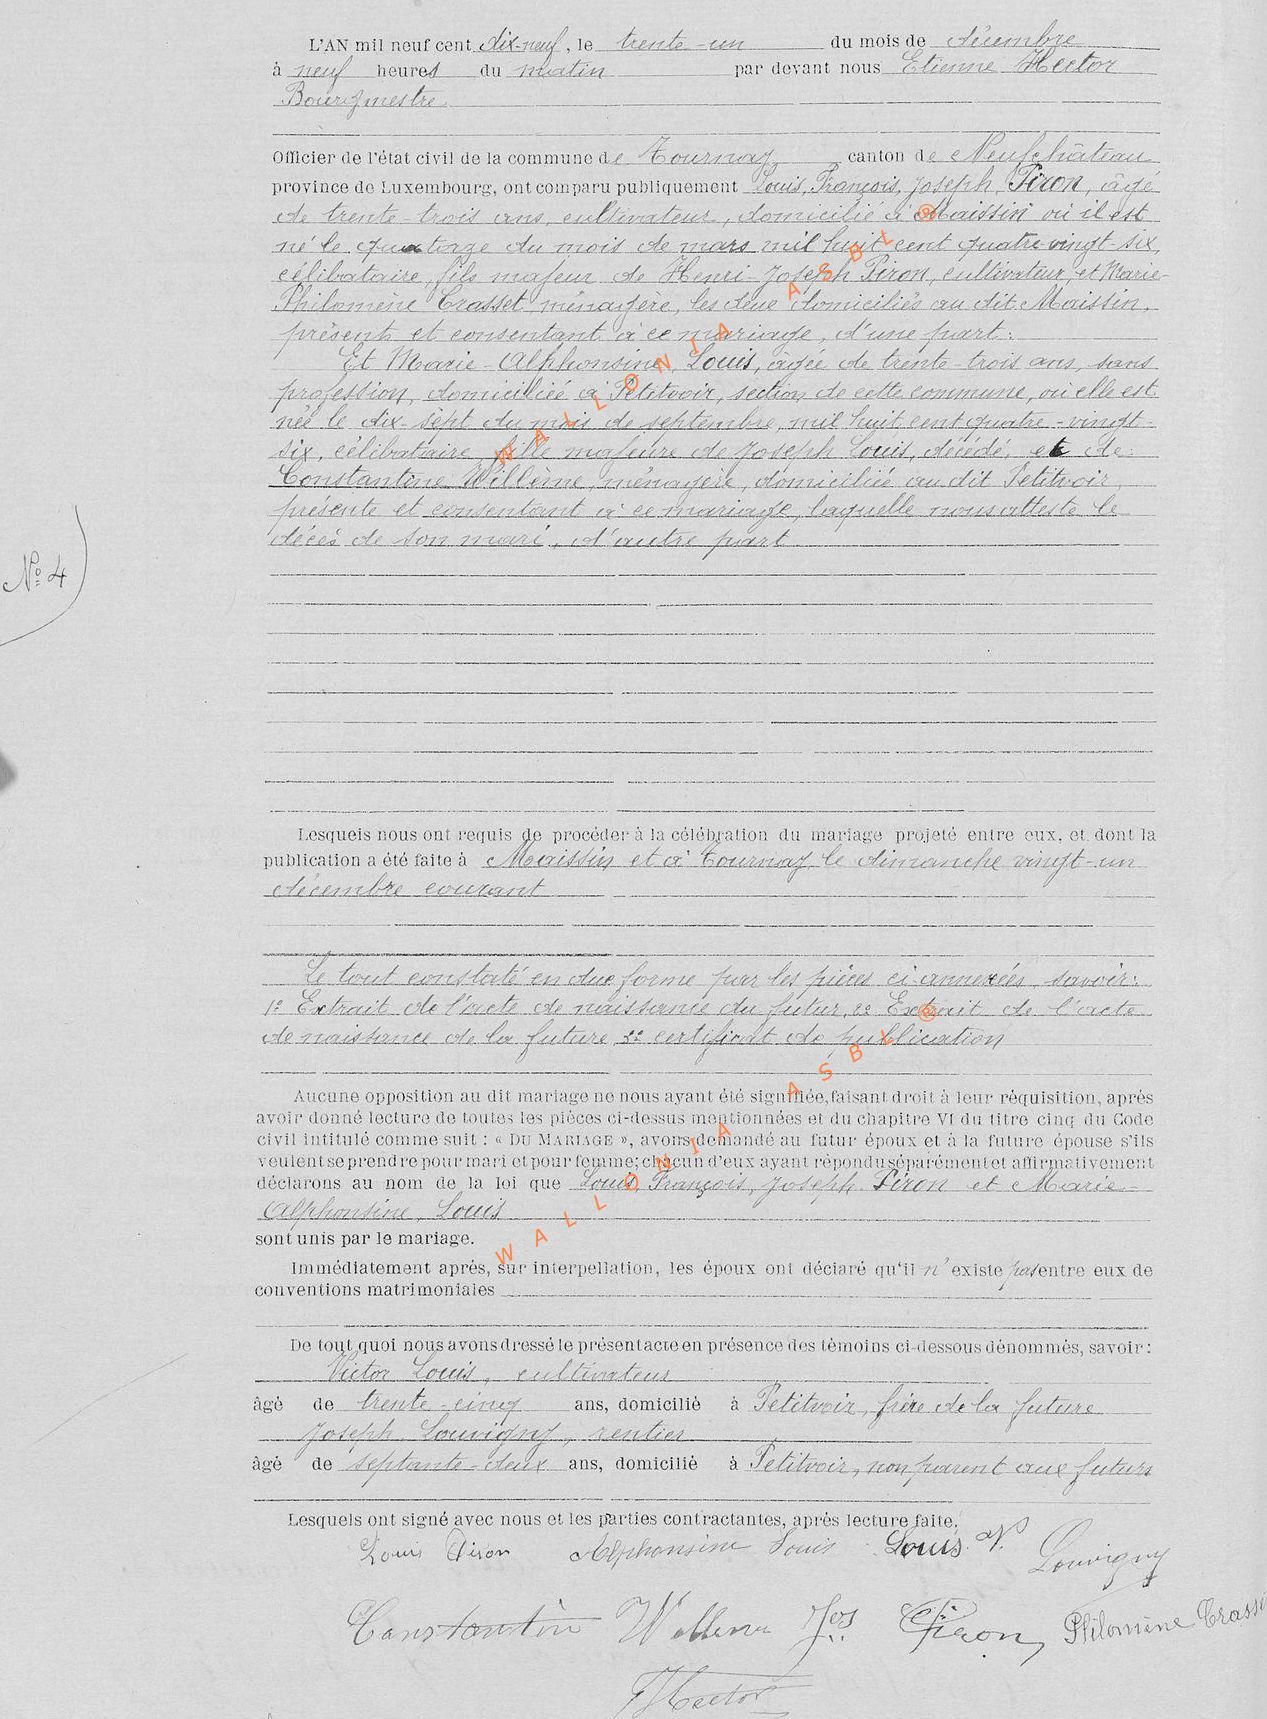 L'AN mil neuf cent dix-neuf, le trente-un du mois de décembre
à neuf heures du matin par devant nous Etienne Hector
Bourgmestre
Officier de l'état civil de la commune de Tournay canton de Neufchâteau
province de Luxembourg, ont comparu publiquement Louis, François, Joseph, Piron, âgé
de trente-trois ans, cultivateur, domicilié à Maissin où il est
né le quatorze du mois de mars mil huit cent quatre-vingt-six,
célibataire, fils majeur de Henri-Joseph Piron, cultivateur, et Marie-
Philomène Crasset, ménagère, les deux domiciliés au dit Maissin,
présents et consentant à ce mariage, d'une part:
Et Marie-Alphonsine, Louis, âgée de trente-trois ans, sans
profession, domiciliée à Petitvoir, section de cette commune, où elle est
née le dix-sept du mois de septembre, mil huit cent quatre-vingt-
six, célibataire, fille majeure de Joseph Louis, décédé, et de
Constantine Willème, ménagère, domiciliée au dit Petitvoir,
présente et consentant à ce mariage, laquelle nous atteste le
décès de son mari, d'autre part
No 4
Lesquels nous ont requis de procéder à la célébration du mariage projeté entre eux, et dont la
publication a été faite à Maissin et à Tournay le dimanche vingt-un
décembre courant
Le tout constaté en due forme par les pièces ci-annexées, savoir:
1o Extrait de l'acte de naissance du futur, 2o Extrait de l'acte
de naissance de la future, 3o certificat de publication
Aucune opposition au dit mariage ne nous ayant été signifiée, faisant droit à leur réquisition, après
avoir donné lecture de toutes les pièces ci-dessus mentionnées et du chapitre VI du titre cinq du Code
civil intitulé comme suit : « DU MARIAGE », avons demandé au futur époux et à la future épouse s'ils
veulent se prendre pour mari et pour femme; chacun d'eux ayant répondu séparément et affirmativement
déclarons au nom de la loi que Louis, François, Joseph Piron et Marie-
Alphonsine, Louis
sont unis par le mariage.
Immédiatement après, sur interpellation, les époux ont déclaré qu'il n'existe pas entre eux de
conventions matrimoniales
De tout quoi nous avons dressé le présent acte en présence des témoins ci-dessous dénommés, savoir :
Victor Louis, cultivateur
âgé de trente-cinq ans, domicilié à Petitvoir, frère de la future
Joseph Louvigny, rentier
âgé de septante-deux ans, domicilié à Petitvoir, non parent aux futurs
Lesquels ont signé avec nous et les parties contractantes, après lecture faite.
Louis Piron Alphonsine Louis Louis V. Louvigny
Constantine Willeme Jos Piron Philomène Crasset
Hector
WALLONIA ASBL ®
WALLONIA ASBL ®